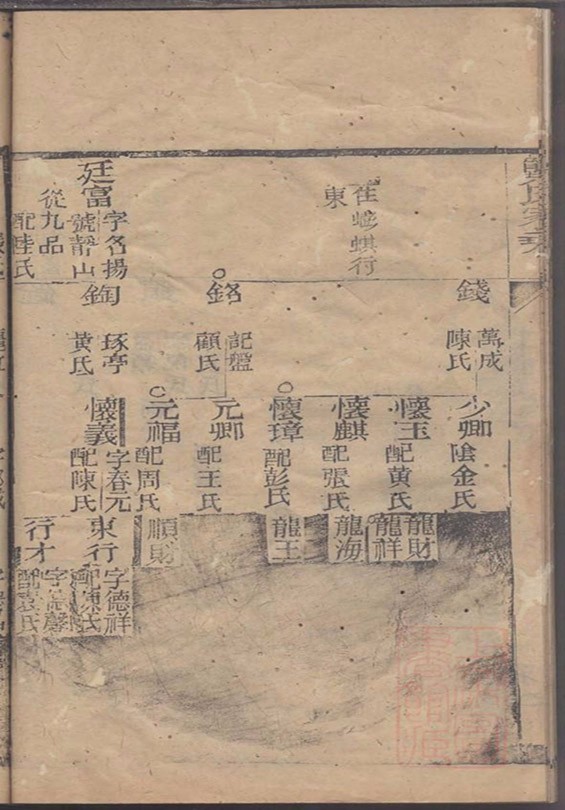 住蜍蜞行
東
廷富
字名揚
號靜山
從九品
配桂氏
錢
萬成
陳氏
鉻
記盤
顧氏
鋾
琢亭
黃氏
少卿
陰金氏
懷玉
配黃氏
懷麒
配張氏
懷璋
配彭氏
元卿
配王氏
元福
配周氏
懷義
字春元
配陳氏
龍財
龍祥
龍海
龍王
順財
東行
字德祥
配陳氏
行才
配袁氏